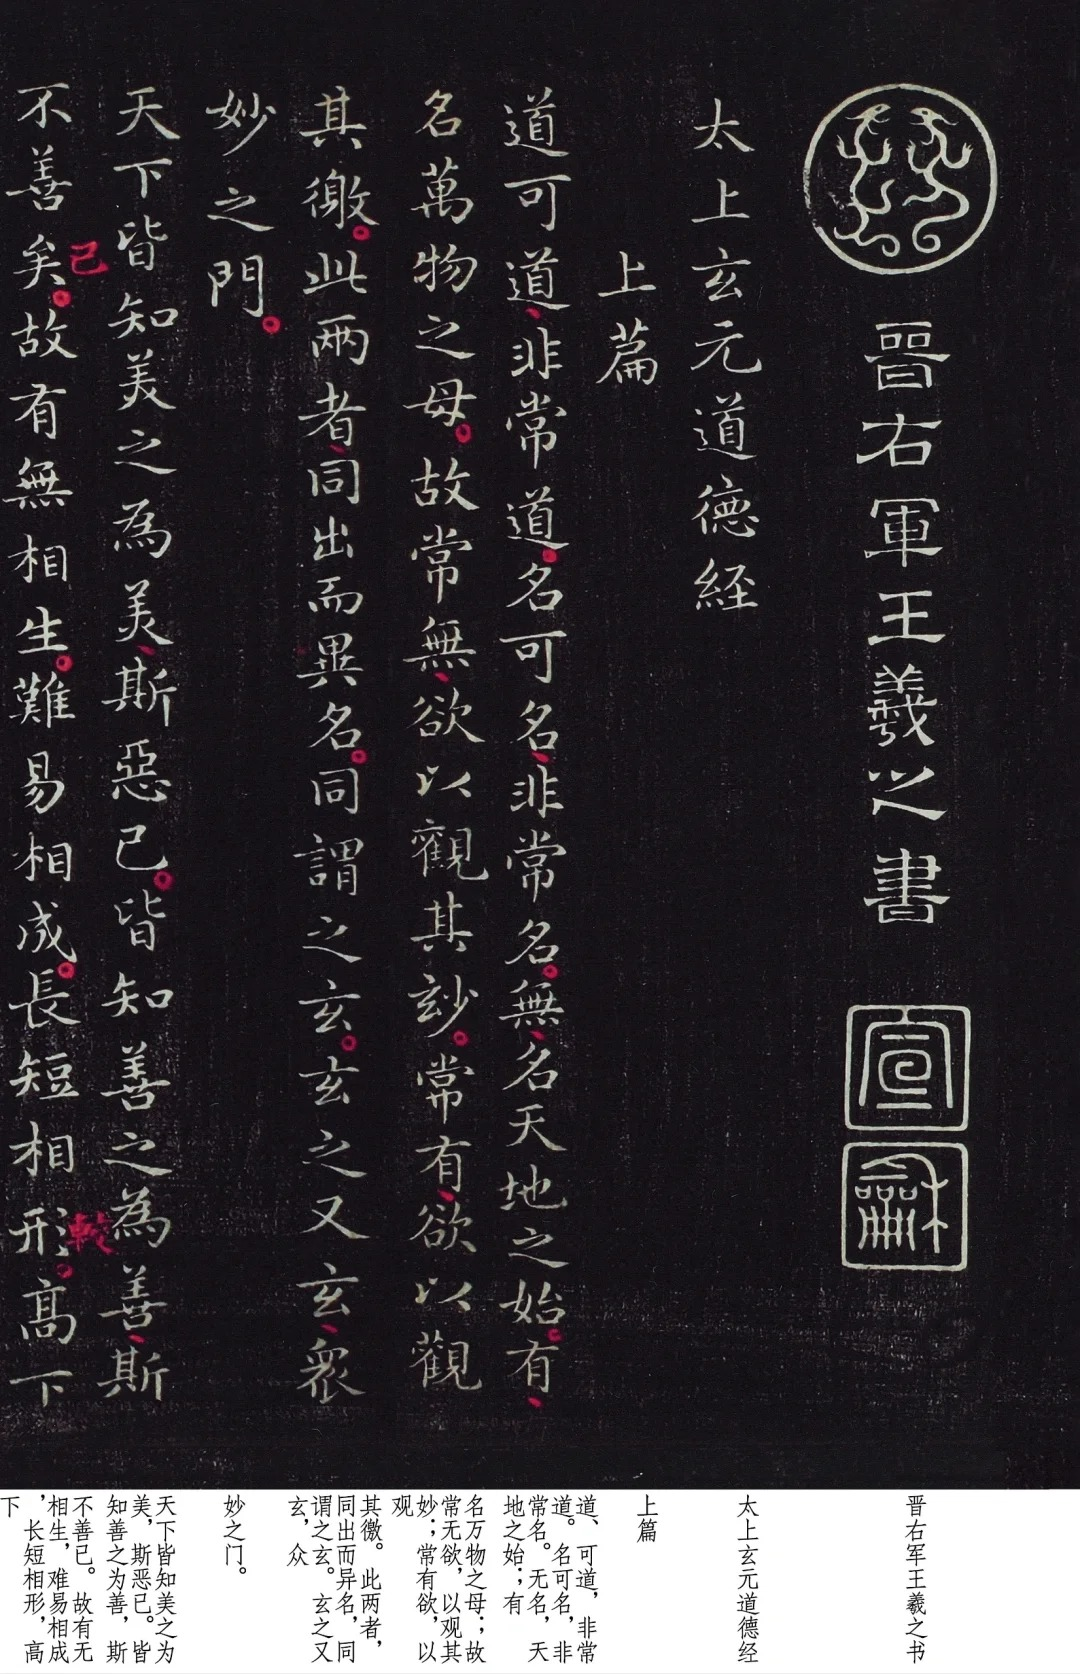 晉右軍王羲之書
宣
龢
太上玄元道德経
上篇
道可道非常道名可名非常名無名天地之始有
名萬物之母故常無欲以觀其玅常有欲以觀
其徼此兩者同出而異名同謂之玄玄之又玄衆
妙之門
天下皆知美之為美斯惡已皆知善之為善斯
不善矣故有無相生難易相成長短相形高下
己
較
晋右军王羲之书
太上玄元道德经
上篇
道、可道，非常
道。名可名，非
常名。无名，天
地之始；有
名万物之母；故
常无欲，以观其
妙；常有欲，以
观
其徼。此两者，
同出而异名，同
谓之玄。玄之又
玄，众
妙之门。
天下皆知美之为
美，斯恶已。皆
知善之为善，斯
不善已。故有无
相生，难易相成
，长短相形，高
下